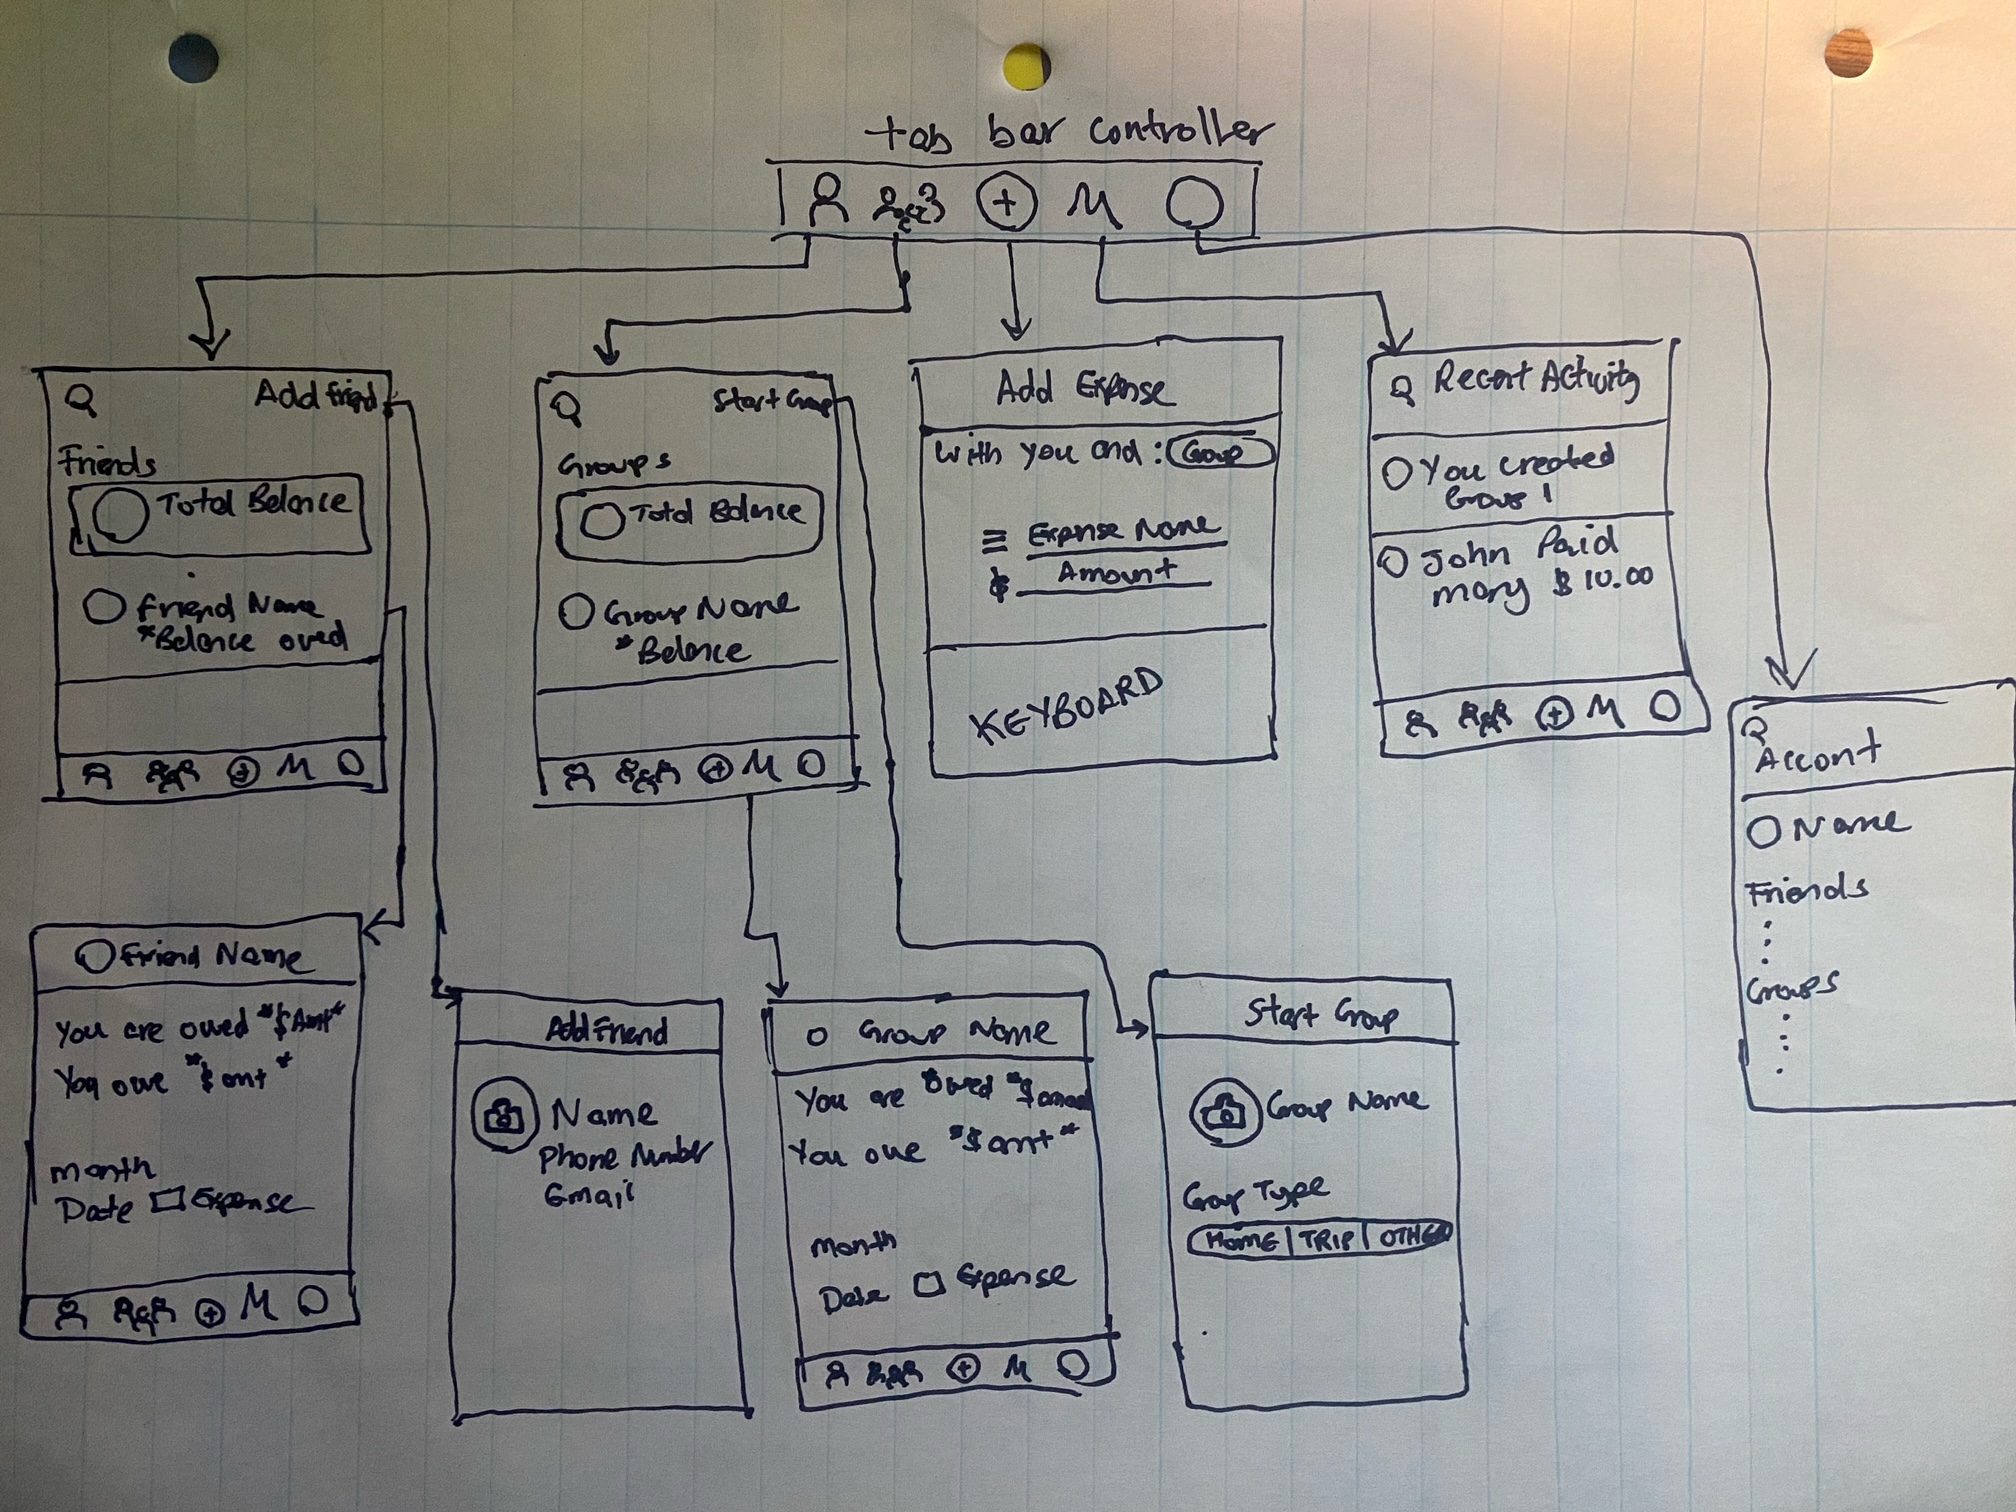 tab bar controller
Add friend
Friends
Total Balance
Friend Name
*Balance owed
Start Group
Groups
Total Balance
Group Name
*Balance
Add Expense
With you and : Group
Expense Name
$ Amount
KEYBOARD
Recent Activity
You created
Group 1
John Paid
mary $10.00
Account
Name
Friends
Groups
Friend Name
You are owed *$Amt*
You owe *$amt*
month
Date Expense
Add Friend
Name
Phone Number
Email
Group Name
You are owed *$amount
You owe *$amt*
month
Date Expense
Start Group
Group Name
Group Type
HOME | TRIP | OTHER